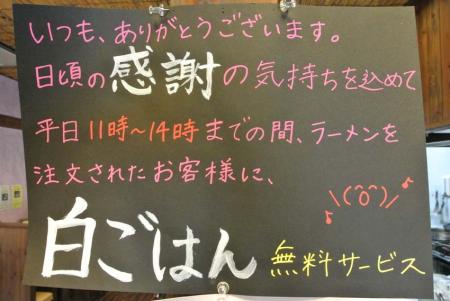 いつも、ありがとうございます。
日頃の感謝の気持ちを込めて
平日11時~14時までの間、ラーメンを
注文されたお客様に、
\(^o^)/♪
白ごはん 無料サービス